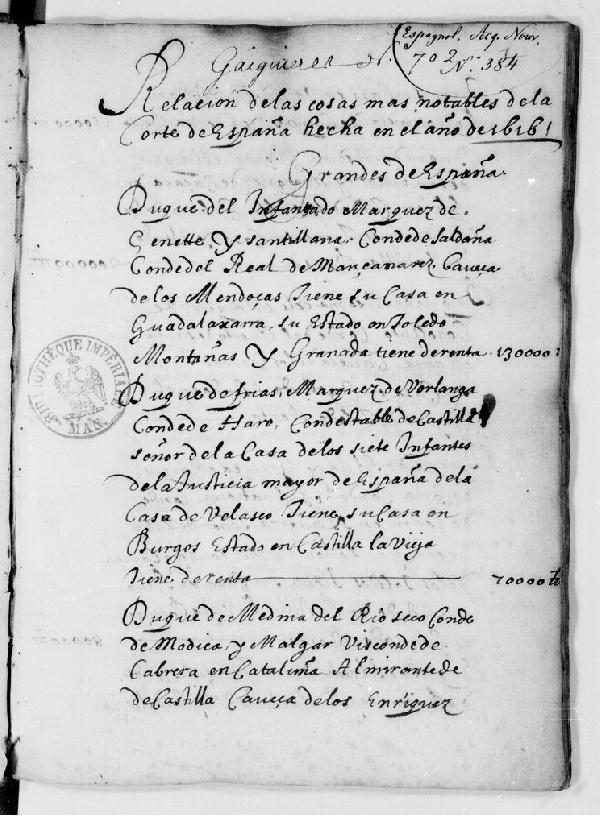 Espagnol. Acq. Nouv.
702 Nº 384
Gaignieres
Relacion de las cosas mas notables de la
Corte de España hecha en el año de 1616
Grandes de España
Duque del Infantado Marquez de
Genette, y santillana, Conde de saldaña
Conde del Real de Mançanarez Caveça
de los Mendoças tiene su Casa en
Guadalaxarra, su Estado en Toledo
Montañas y Granada tiene de renta 130000
Duque de frias, Marquez de Verlanga
Conde de Haro, Condestable de Castilla
señor de la Casa de los siete Infantes
de la Justicia mayor de España de la
Casa de Velasco tiene su Casa en
Burgos Estado en Castilla la Vieja
tiene de renta 70000
Duque de Medina del Rio seco Conde
de Modica, y Malgar Visconde de
Cabrera en Cataluña Almirante de
de Castilla Caveça de los Enriquez
BIBLIOTHÈQUE IMPÉRIALE
MAN.